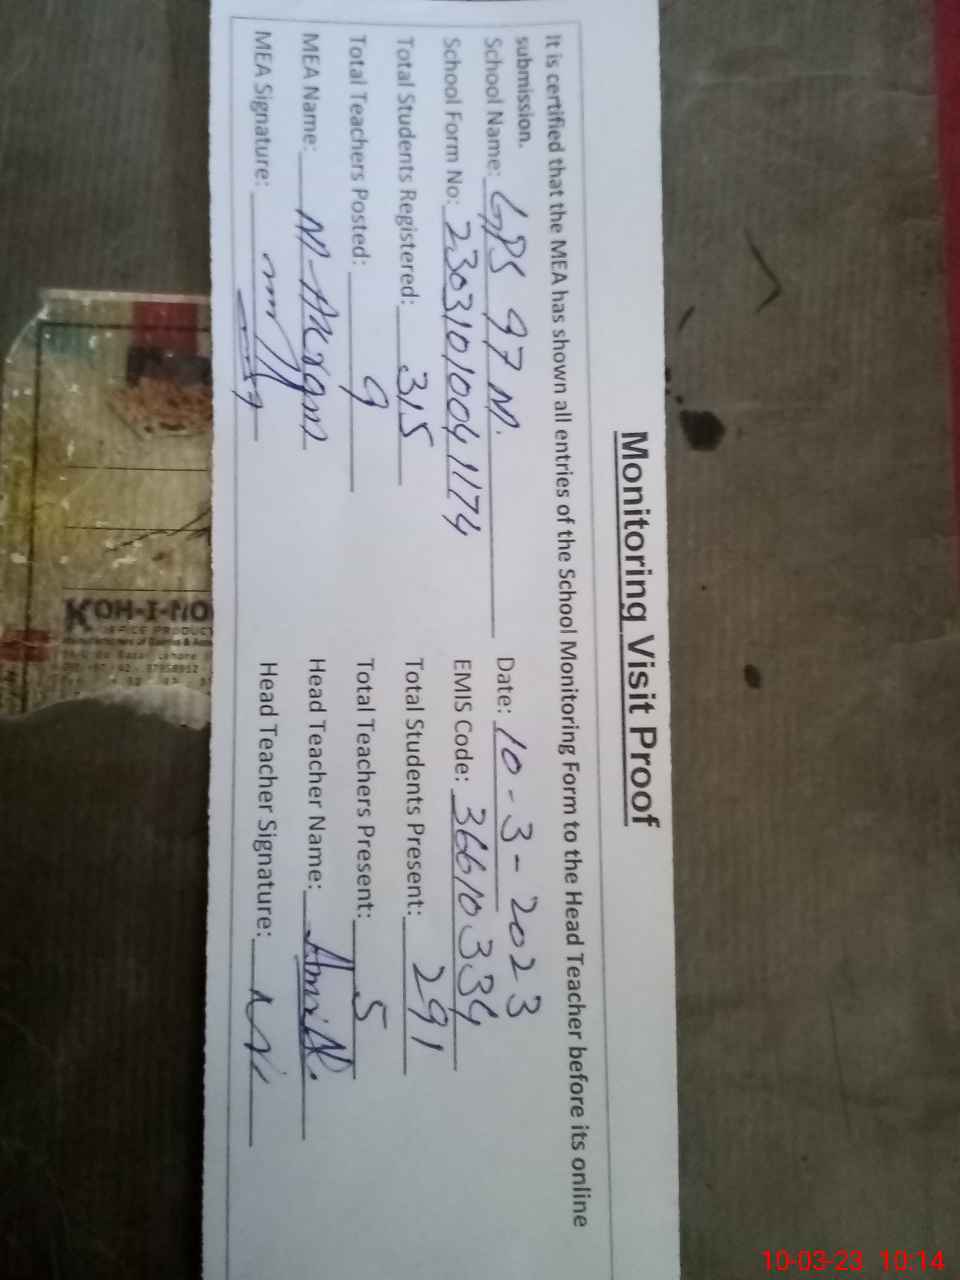 Monitoring Visit Proof
It is certified that the MEA has shown all entries of the School Monitoring Form to the Head Teacher before its online
submission.
School Name: GPS 97 M. Date: 10-3-2023
School Form No: 2303101004 1174 EMIS Code: 36610334
Total Students Registered: 315 Total Students Present: 291
Total Teachers Posted: 9 Total Teachers Present: 5
MEA Name: M-Akram Head Teacher Name:
MEA Signature: Head Teacher Signature:
KOH-I-NO
OFFICE PRODUCT
10-03-23 10:14